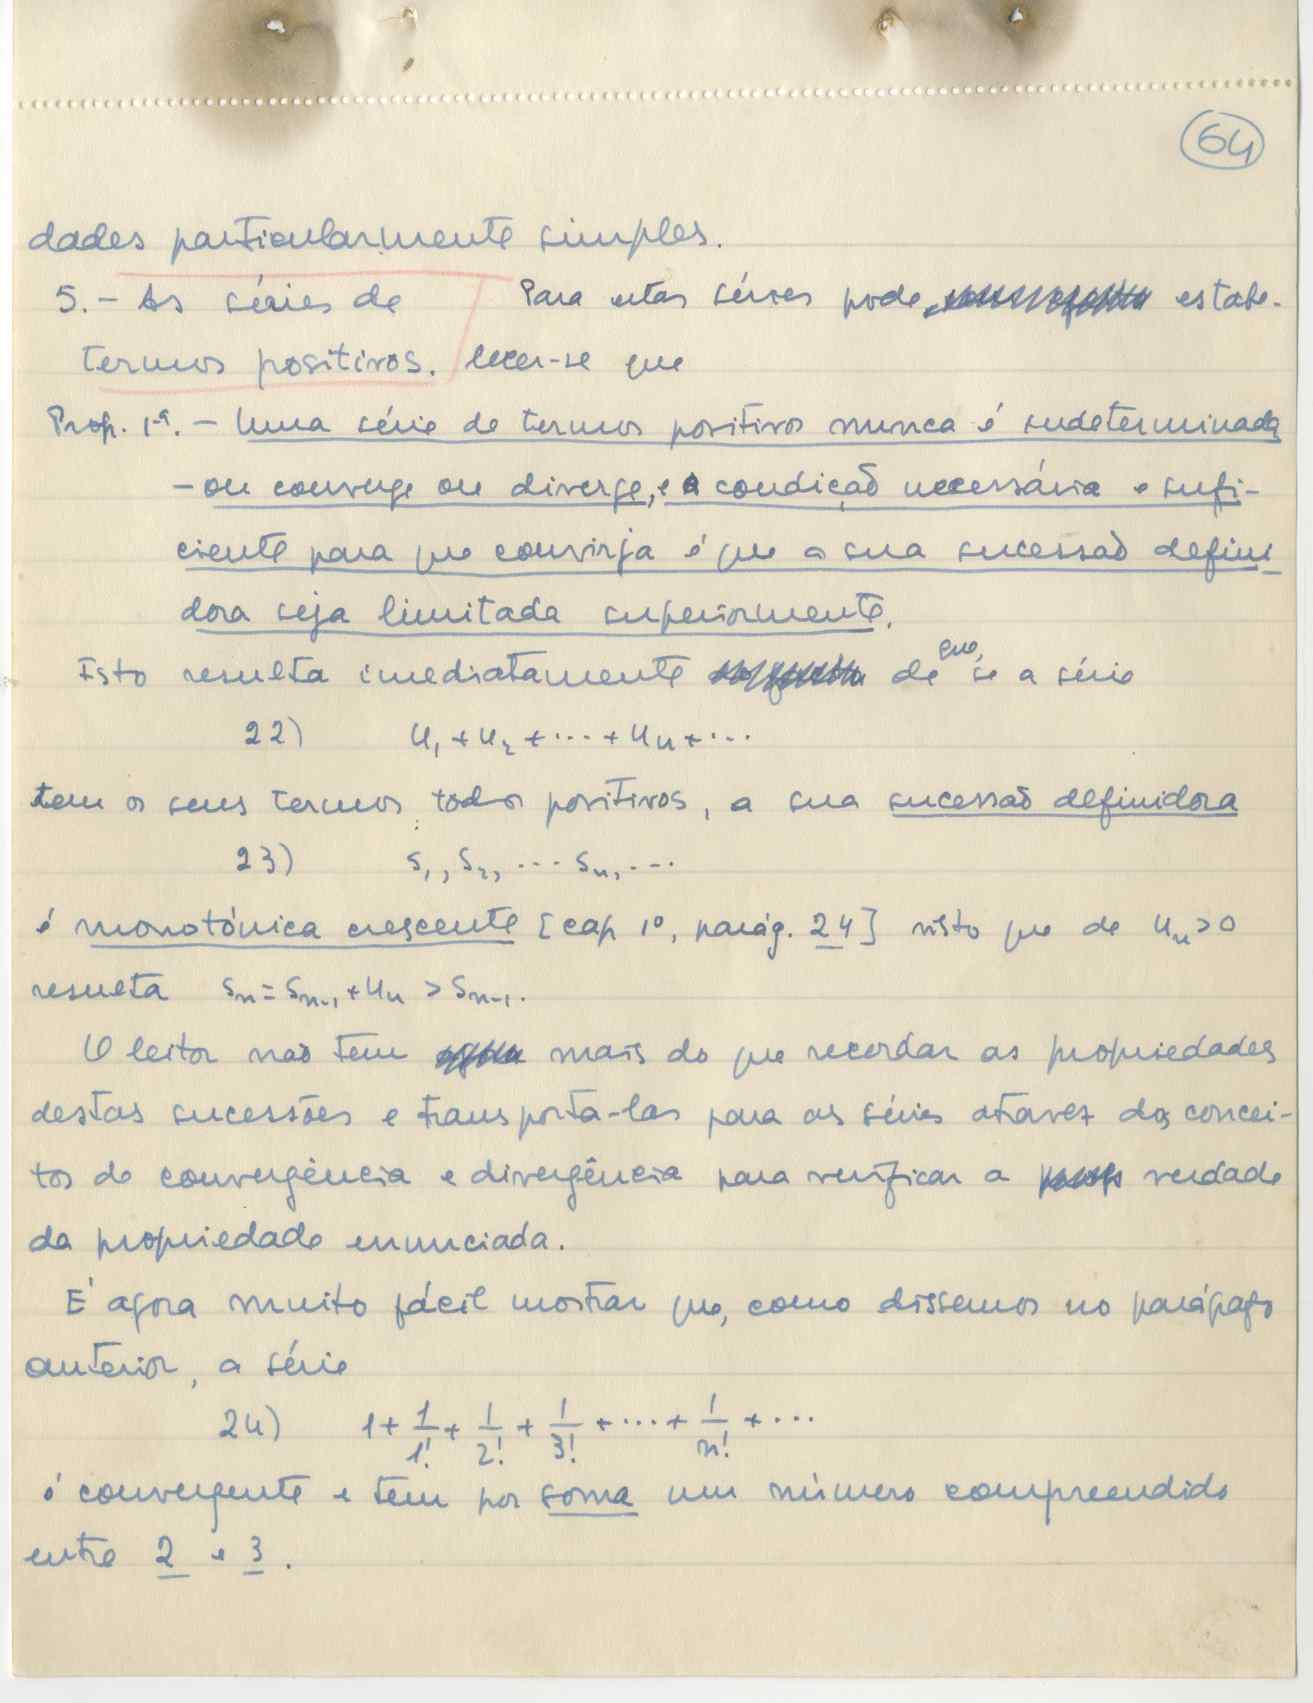 64
dades particularmente simples.
5.- As séries de Para estas séries pode estabe-
termos positivos. lecer-se que
Prop. 1ª. - Uma série de termos positivos nunca é indeterminada
- ou converge ou diverge, e a condição necessária e sufi-
ciente para que convirja é que a sua sucessão defini
dora seja limitada superiormente.
Isto resulta imediatamente de que, se a série
22) u₁ + u₂ + ... + uₙ + ...
tem os seus termos todos positivos, a sua sucessão definidora
23) s₁, s₂, ... sₙ, ...
é monotónica crescente [cap 1º, parág. 24] visto que de uₙ > 0
resulta sₙ = sₙ₋₁ + uₙ > sₙ₋₁.
O leitor não tem mais do que recordar as propriedades
destas sucessões e transporta-las para as séries atravez dos concei-
tos de convergência e divergência para verificar a verdade
da propriedade enunciada.
É agora muito fácil mostrar que, como dissemos no parágrafo
anterior, a série
24) 1 + 1/1! + 1/2! + 1/3! + ... + 1/n! + ...
é convergente e tem por soma um número compreendido
entre 2 e 3.